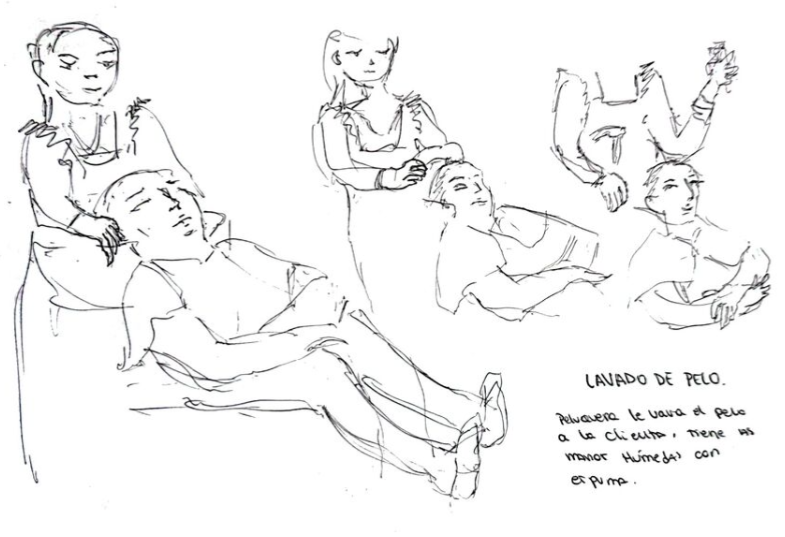 LAVADO DE PELO.
Peluquera le lava el pelo
a la clienta, tiene las
manos húmedas con
espuma.